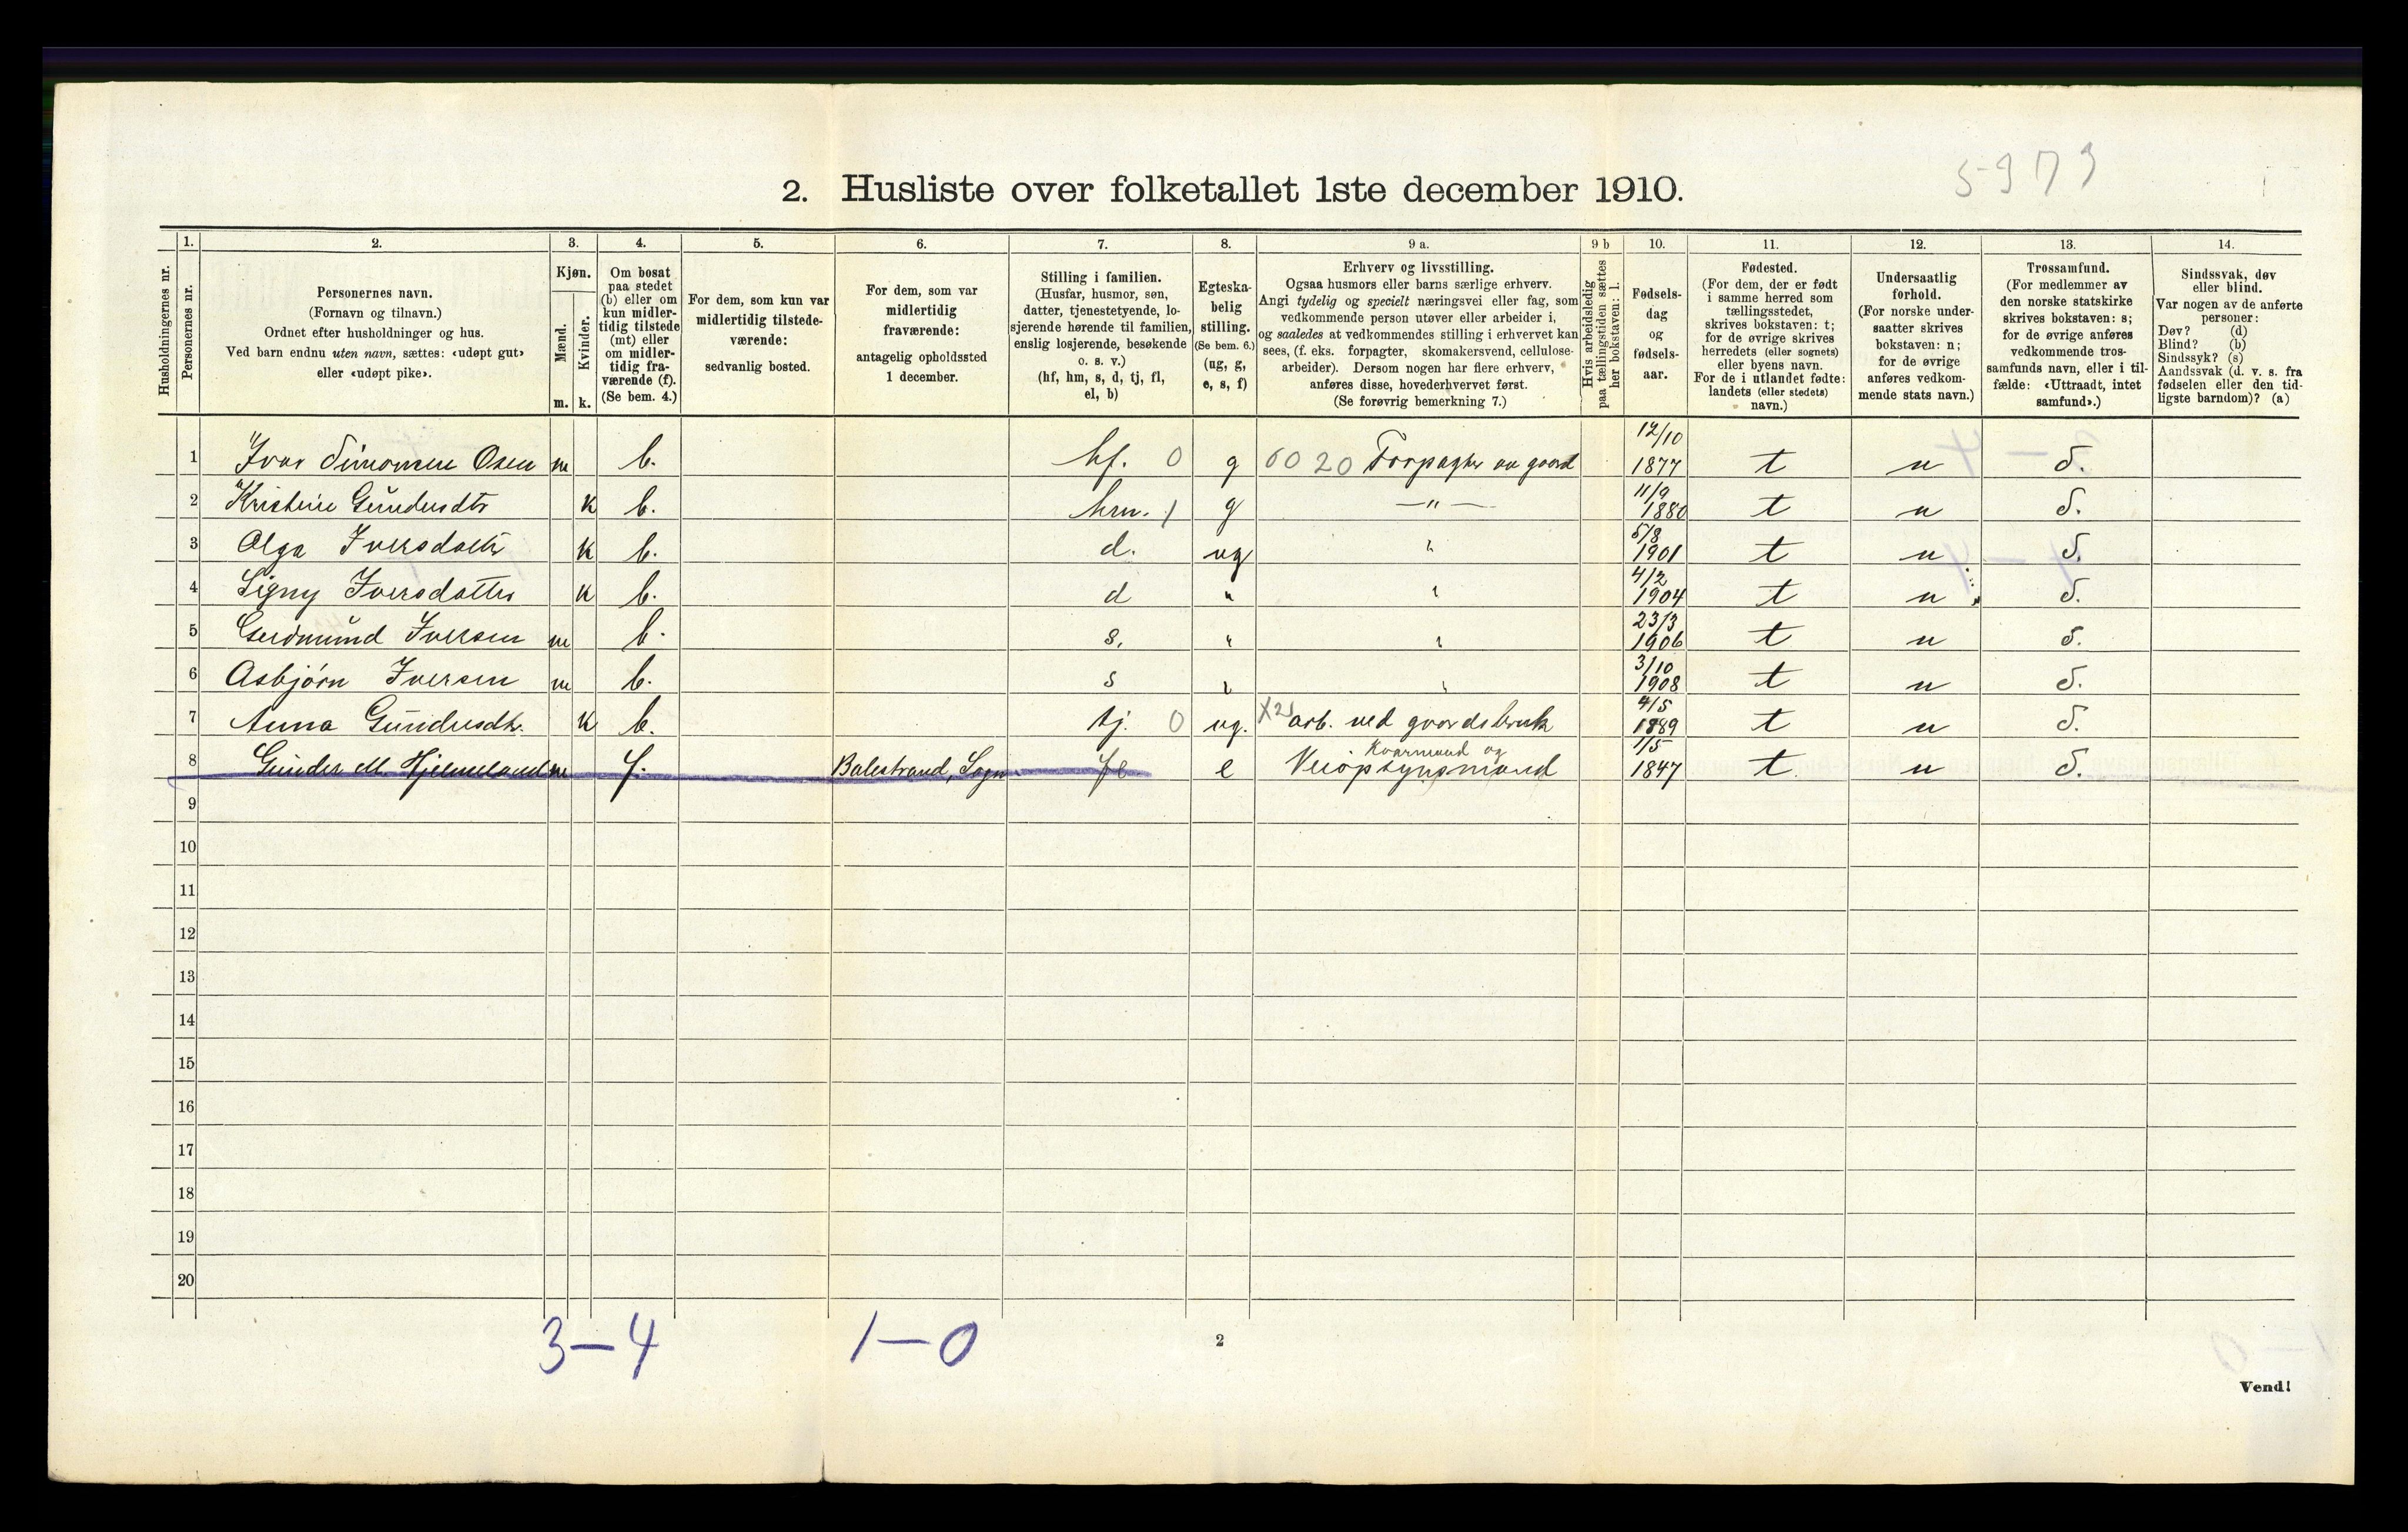 5973
2. Husliste over folketallet 1ste december 1910.
Husholdningernes nr.
1.
Personernes nr.
2.
Personernes navn.
(Fornavn og tilnavn.)
Ordnet efter husholdninger og hus.
Ved barn endnu uten navn, sættes: «udøpt gut»
eller «udøpt pike».
3.
Kjøn.
Mænd.
Kvinder.
m. k.
4.
Om bosat
paa stedet
(b) eller om
kun midler-
tidig tilstede
(mt) eller
om midler-
tidig fra-
værende (f).
(Se bem. 4.)
5.
For dem, som kun var
midlertidig tilstede-
værende:
sedvanlig bosted.
6.
For dem, som var
midlertidig
fraværende:
antagelig opholdssted
1 december.
7.
Stilling i familien.
(Husfar, husmor, søn,
datter, tjenestetyende, lo-
sjerende hørende til familien,
enslig losjerende, besøkende
o. s. v.)
(hf, hm, s, d, tj, fl,
el, b)
8.
Egteska-
belig
stilling.
(Se bem. 6.)
(ug, g,
e, s, f)
9 a.
Erhverv og livsstilling.
Ogsaa husmors eller barns særlige erhverv.
Angi tydelig og specielt næringsvei eller fag, som
vedkommende person utøver eller arbeider i,
og saaledes at vedkommendes stilling i erhvervet kan
sees, (f. eks. forpagter, skomakersvend, cellulose-
arbeider). Dersom nogen har flere erhverv,
anføres disse, hovederhvervet først.
(Se forøvrig bemerkning 7.)
9 b
Hvis arbeidsledig
paa tællingstiden sættes
her bokstaven: l.
10.
Fødsels-
dag
og
fødsels-
aar.
11.
Fødested.
(For dem, der er født
i samme herred som
tællingsstedet,
skrives bokstaven: t;
for de øvrige skrives
herredets (eller sognets)
eller byens navn.
For de i utlandet fødte:
landets (eller stedets)
navn.)
12.
Undersaatlig
forhold.
(For norske under-
saatter skrives
bokstaven: n;
for de øvrige
anføres vedkom-
mende stats navn.)
13.
Trossamfund.
(For medlemmer av
den norske statskirke
skrives bokstaven: s;
for de øvrige anføres
vedkommende tros-
samfunds navn, eller i til-
fælde: «Uttraadt, intet
samfund».)
14.
Sindssvak, døv
eller blind.
Var nogen av de anførte
personer:
Døv? (d)
Blind? (b)
Sindssyk? (s)
Aandssvak (d. v. s. fra
fødselen eller den tid-
ligste barndom)? (a)
1 Ivar Simonsen Osen m b. hf. 0 g 6020 Forpagter av gaard 12/10 1877 t n S.
2 Kristine Gundersdtr k b. hm. 1 g —"— 11/9 1880 t n S.
3 Olga Iversdatter k b. d. ug " 5/8 1901 t n S.
4 Signy Iversdatter k b. d " " 4/2 1904 t n S.
5 Gudmund Iversen m b. s. " " 23/3 1906 t n S.
6 Asbjørn Iversen m b. s " " 3/10 1908 t n S.
7 Anna Gundersdtr. k b. tj. 0 ug. arb. ved gaardsbruk 4/5 1889 t n S.
8 Gunder M. Hjelmeland m f. Balestrand, Sogn fl e Kvarnmand og Veiopsynsmand 1/5 1847 t n S.
9
10
11
12
13
14
15
16
17
18
19
20
3—4 1—0
2
Vend!